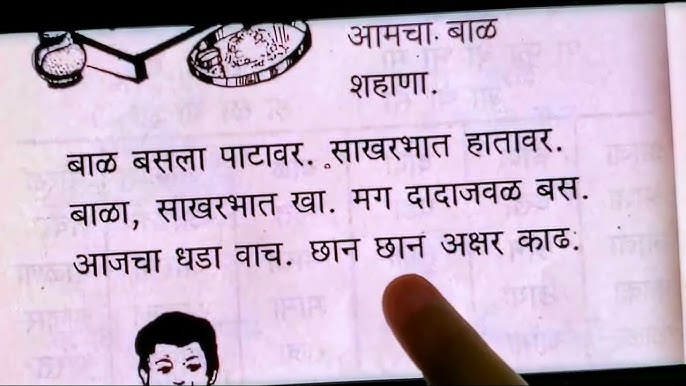 आमचा बाळ
शहाणा.
बाळ बसला पाटावर. साखरभात हातावर.
बाळा, साखरभात खा. मग दादाजवळ बस.
आजचा धडा वाच. छान छान अक्षर काढ.